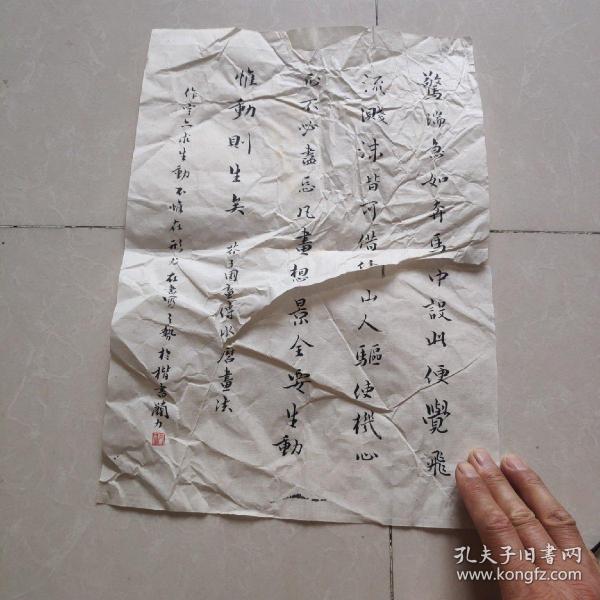 驚湍急如奔馬中設此便覺飛
流濺沫皆可借
山人驅使機心
不必盡忘凡畫想景全要生動
惟動則生矣
國畫
水磨畫法
作字亦求生動不惟在形
在
於楷書
孔夫子旧书网
www.kongfz.com